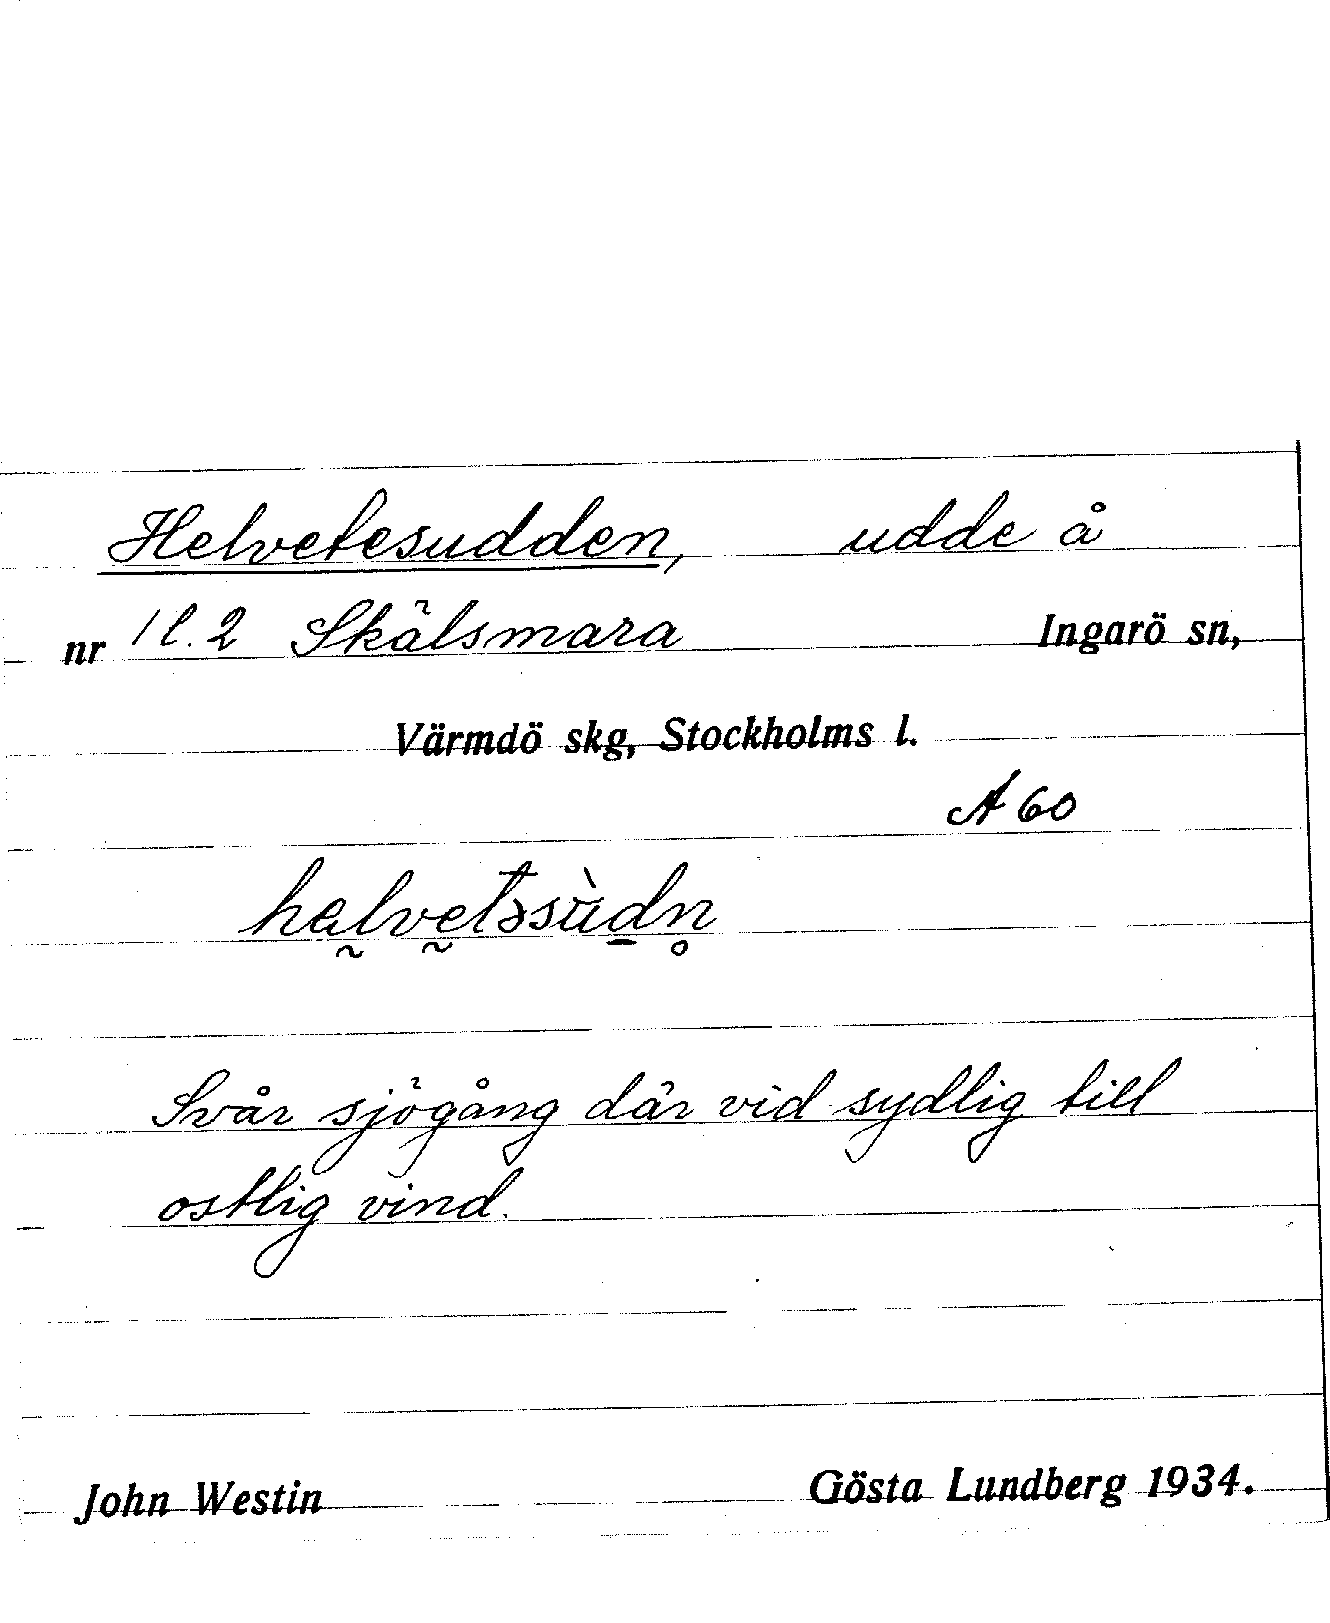 Helvetesudden, udde å
nr 1 l. 2 Skälsmara Ingarö sn,
Värmdö skg, Stockholms l.
A 60
Svår sjögång där vid sydlig till
ostlig vind.
John Westin Gösta Lundberg 1934.